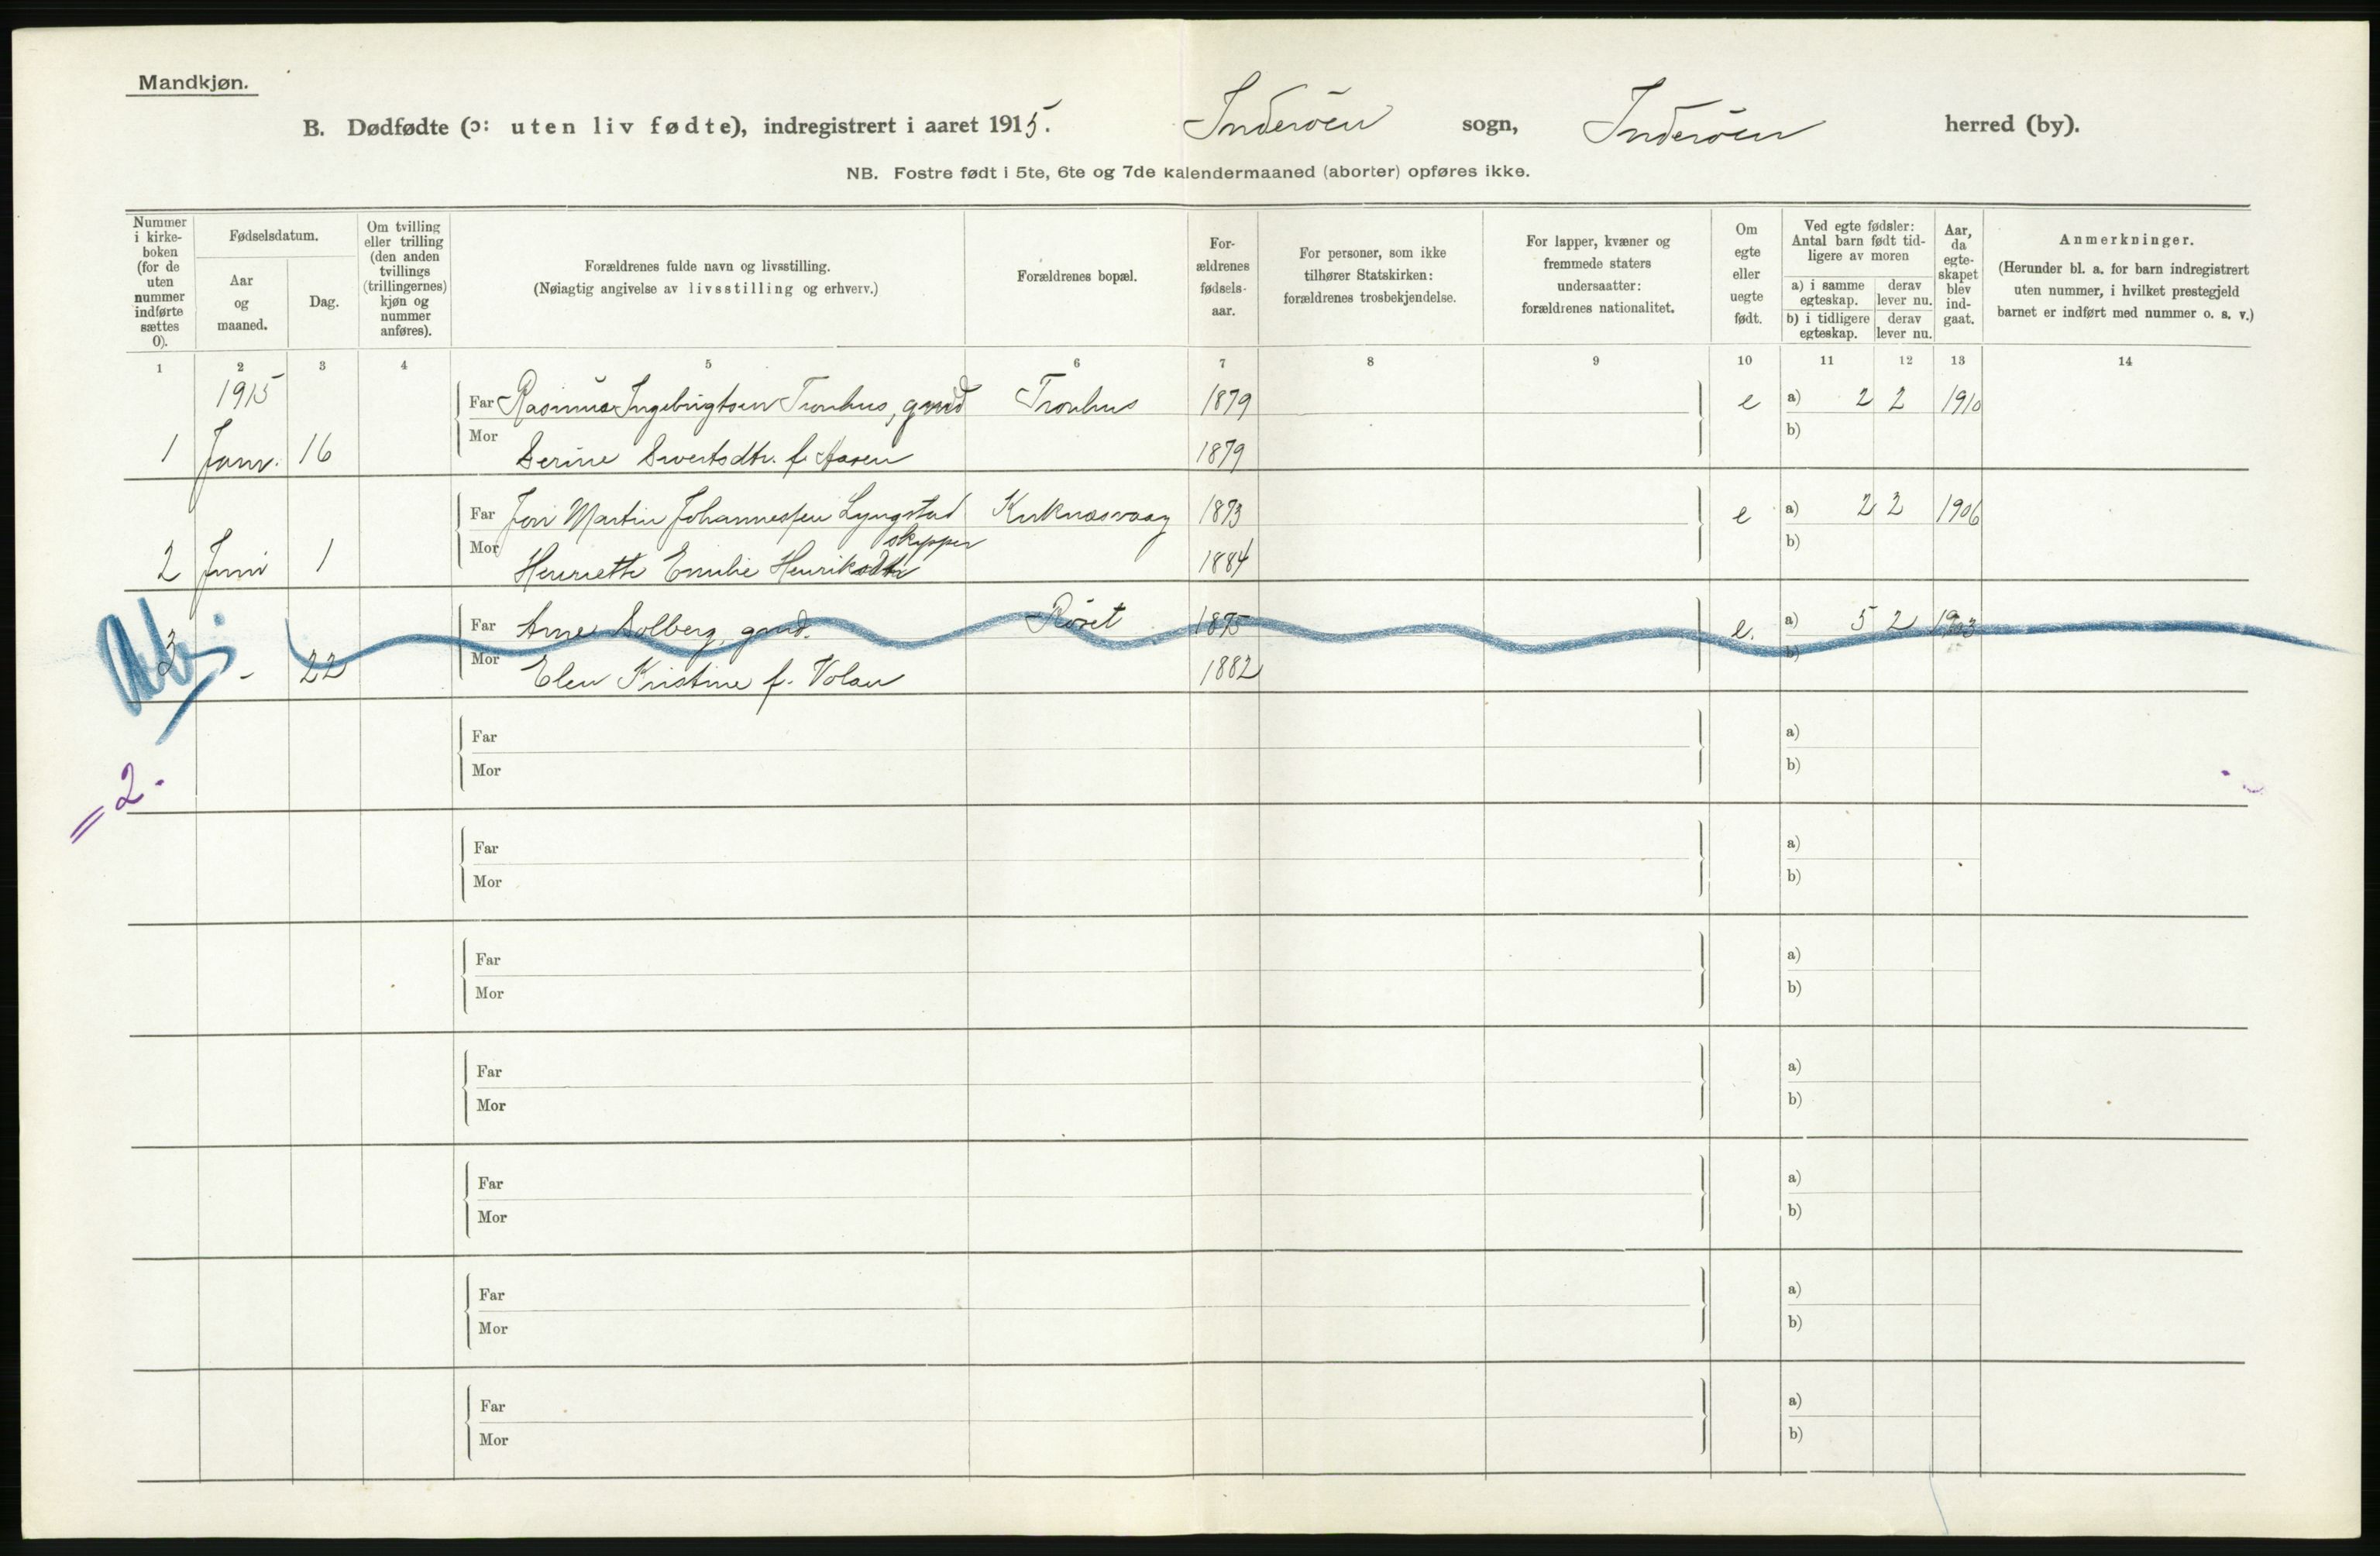 Mandkjøn.
B. Dødfødte (ɔ: uten liv fødte), indregistrert i aaret 1915. Inderöen sogn, Inderöen herred (by).
NB. Fostre født i 5te, 6te og 7de kalendermaaned (aborter) opføres ikke.
Nummer i kirke-boken (for de uten nummer indførte sættes 0).
Fødselsdatum.
Aar og maaned.
Dag.
Om tvilling eller trilling (den anden tvillings (trillingernes) kjøn og nummer anføres).
Forældrenes fulde navn og livsstilling.
(Nøiagtig angivelse av livsstilling og erhverv.)
Forældrenes bopæl.
For-ældrenes fødsels-aar.
For personer, som ikke tilhører Statskirken: forældrenes trosbekjendelse.
For lapper, kvæner og fremmede staters undersaatter: forældrenes nationalitet.
Om egte eller uegte født.
Ved egte fødsler: Antal barn født tid-ligere av moren
a) i samme egteskap. derav lever nu.
b) i tidligere egteskap. derav lever nu.
Aar, da egte-skapet blev ind-gaat.
Anmerkninger.
(Herunder bl. a. for barn indregistrert uten nummer, i hvilket prestegjeld barnet er indført med nummer o. s. v.)
1 2 3 4 5 6 7 8 9 10 11 12 13 14
1915 Far Rasmus Ingebrigtsen Tronhus, gmd Tronhus 1879 e a) 2 2 1910
1 Janr. 16 Mor Serine Sivertsdtr. f. Aasen 1879 b)
Far Jon Martin Johannessen Lyngstad Kirknesvaag 1873 e a) 2 2 1906
skipper
2 Juni 1 Mor Henriette Emilie Henriksdtr 1884 b)
Far Arne Solberg, gmd. Röset 1875 e. a) 5 2 1903
3 - 22 Mor Elen Kristine f. Volan 1882 b)
= 2.
Far a)
Mor b)
Far a)
Mor b)
Far a)
Mor b)
Far a)
Mor b)
Far a)
Mor b)
Far a)
Mor b)
Far a)
Mor b)